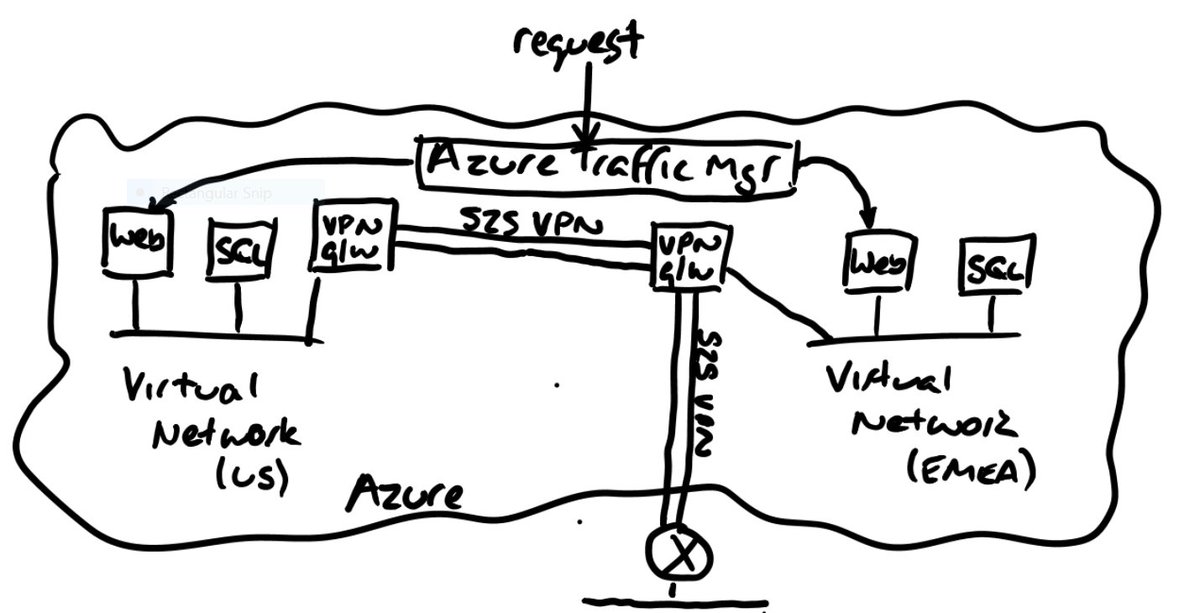 request
Azure Traffic Mgr
Rectangular Snip
Web
SQL
VPN
g/w
S2S VPN
VPN
g/w
Web
SQL
S2S VPN
Virtual
Network
(US)
Virtual
Network
(EMEA)
Azure
X